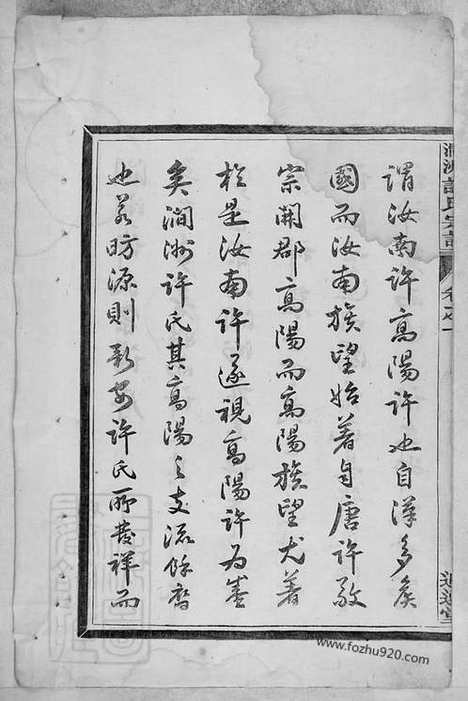 澗洲許氏宗譜
卷之一
追遠堂
謂汝南許高陽許也自漢多矣
國而汝南族望始著自唐許敬
宗開郡高陽而高陽族望尤著
於是汝南許遂視高陽許為盛
矣澗洲許氏其高陽之支流餘裔
也若昉源則新安許氏所發祥而
www.fozhu920.com